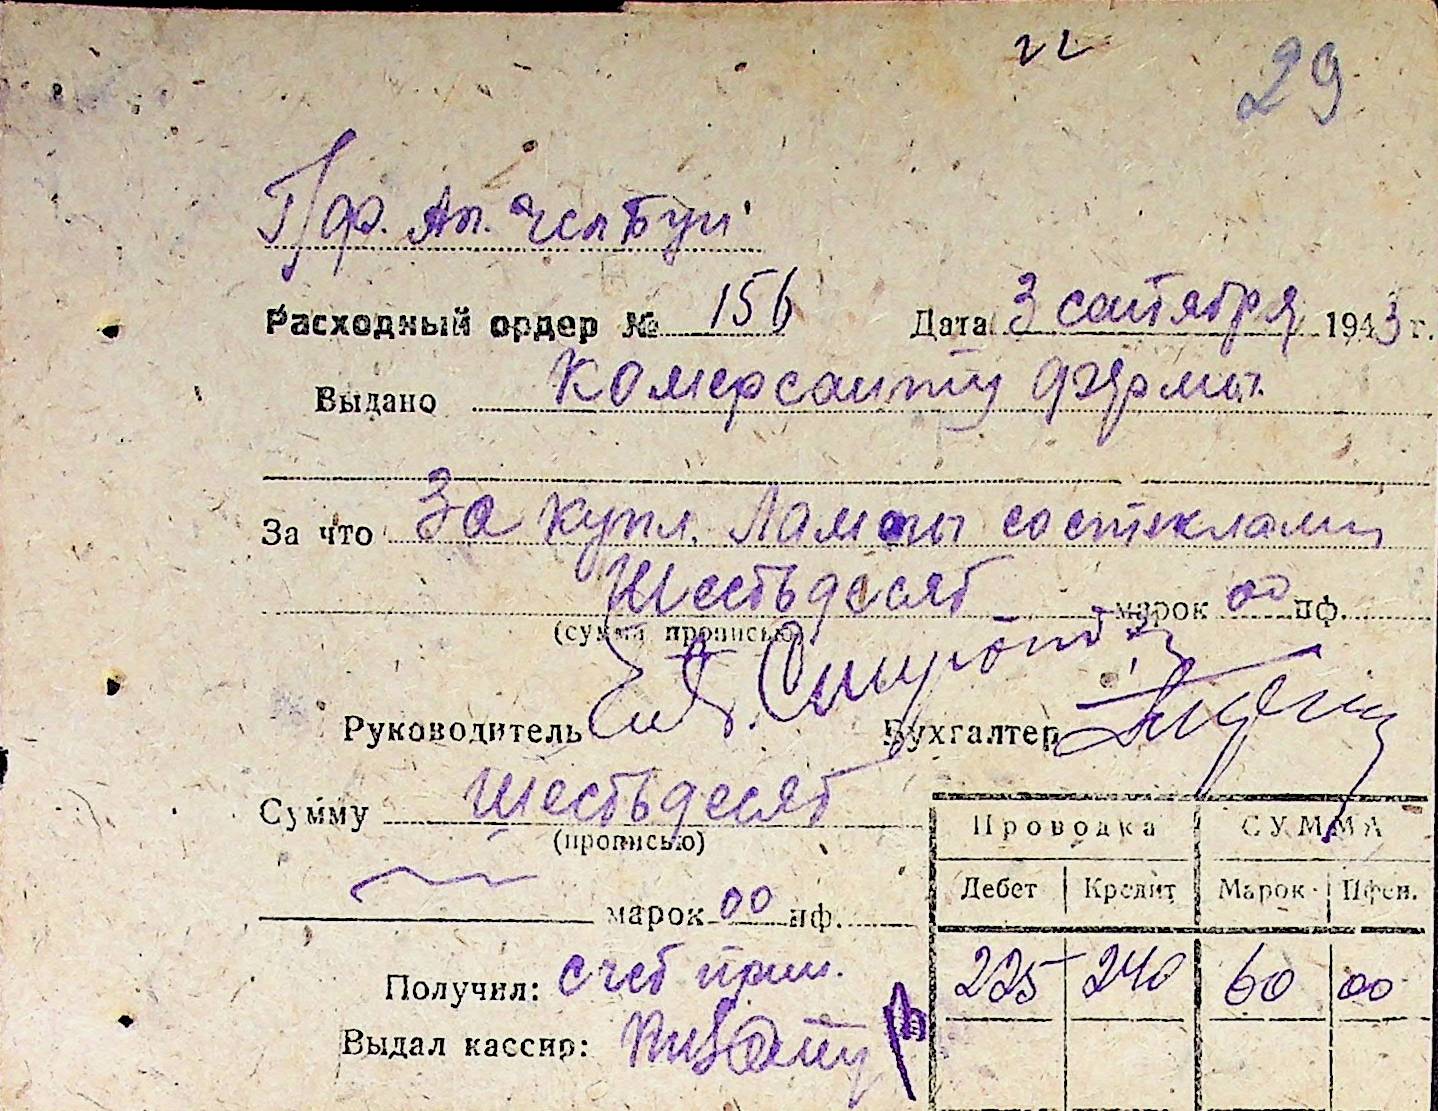 22 29
Расходный ордер № 156 Дата 3 сентября 1943 г.
Выдано Комерсанту фермы
За что За купл. Лампы состеклами
Шестьдесят марок 00 пф.
(сумма прописью)
Руководитель Бухгалтер
Сумму Шестьдесят
(прописью)
марок 00 пф.
Получил: счет прил.
Выдал кассир:
Проводка СУММА
Дебет Кредит Марок Пфен.
225 240 60 00